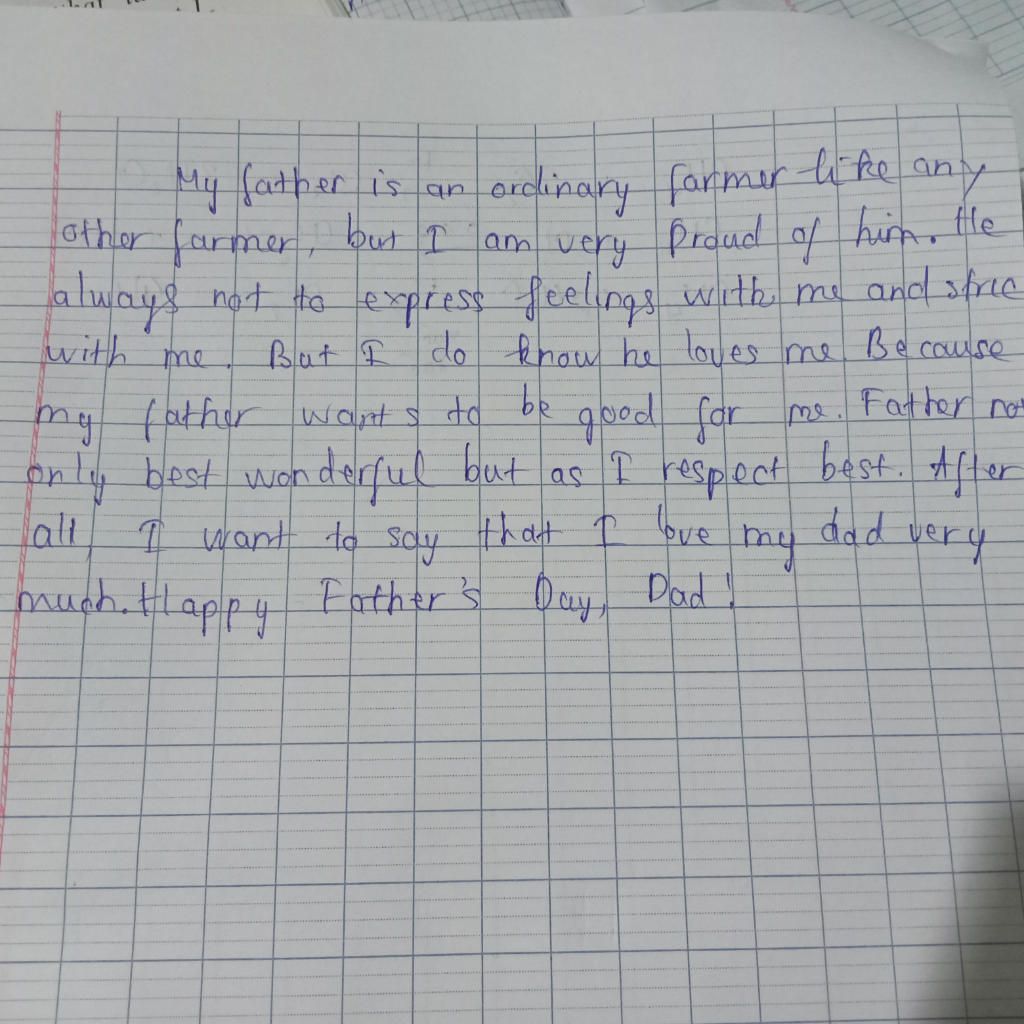 My father is an ordinary farmer like any
other farmer, but I am very proud of him. He
always not to express feelings with me and stric
with me. But I do know he loves me Because
my father wants to be good for me. Father not
only best wonderful but as I respect best. After
all, I want to say that I love my dad very
much. Happy Father's Day, Dad!